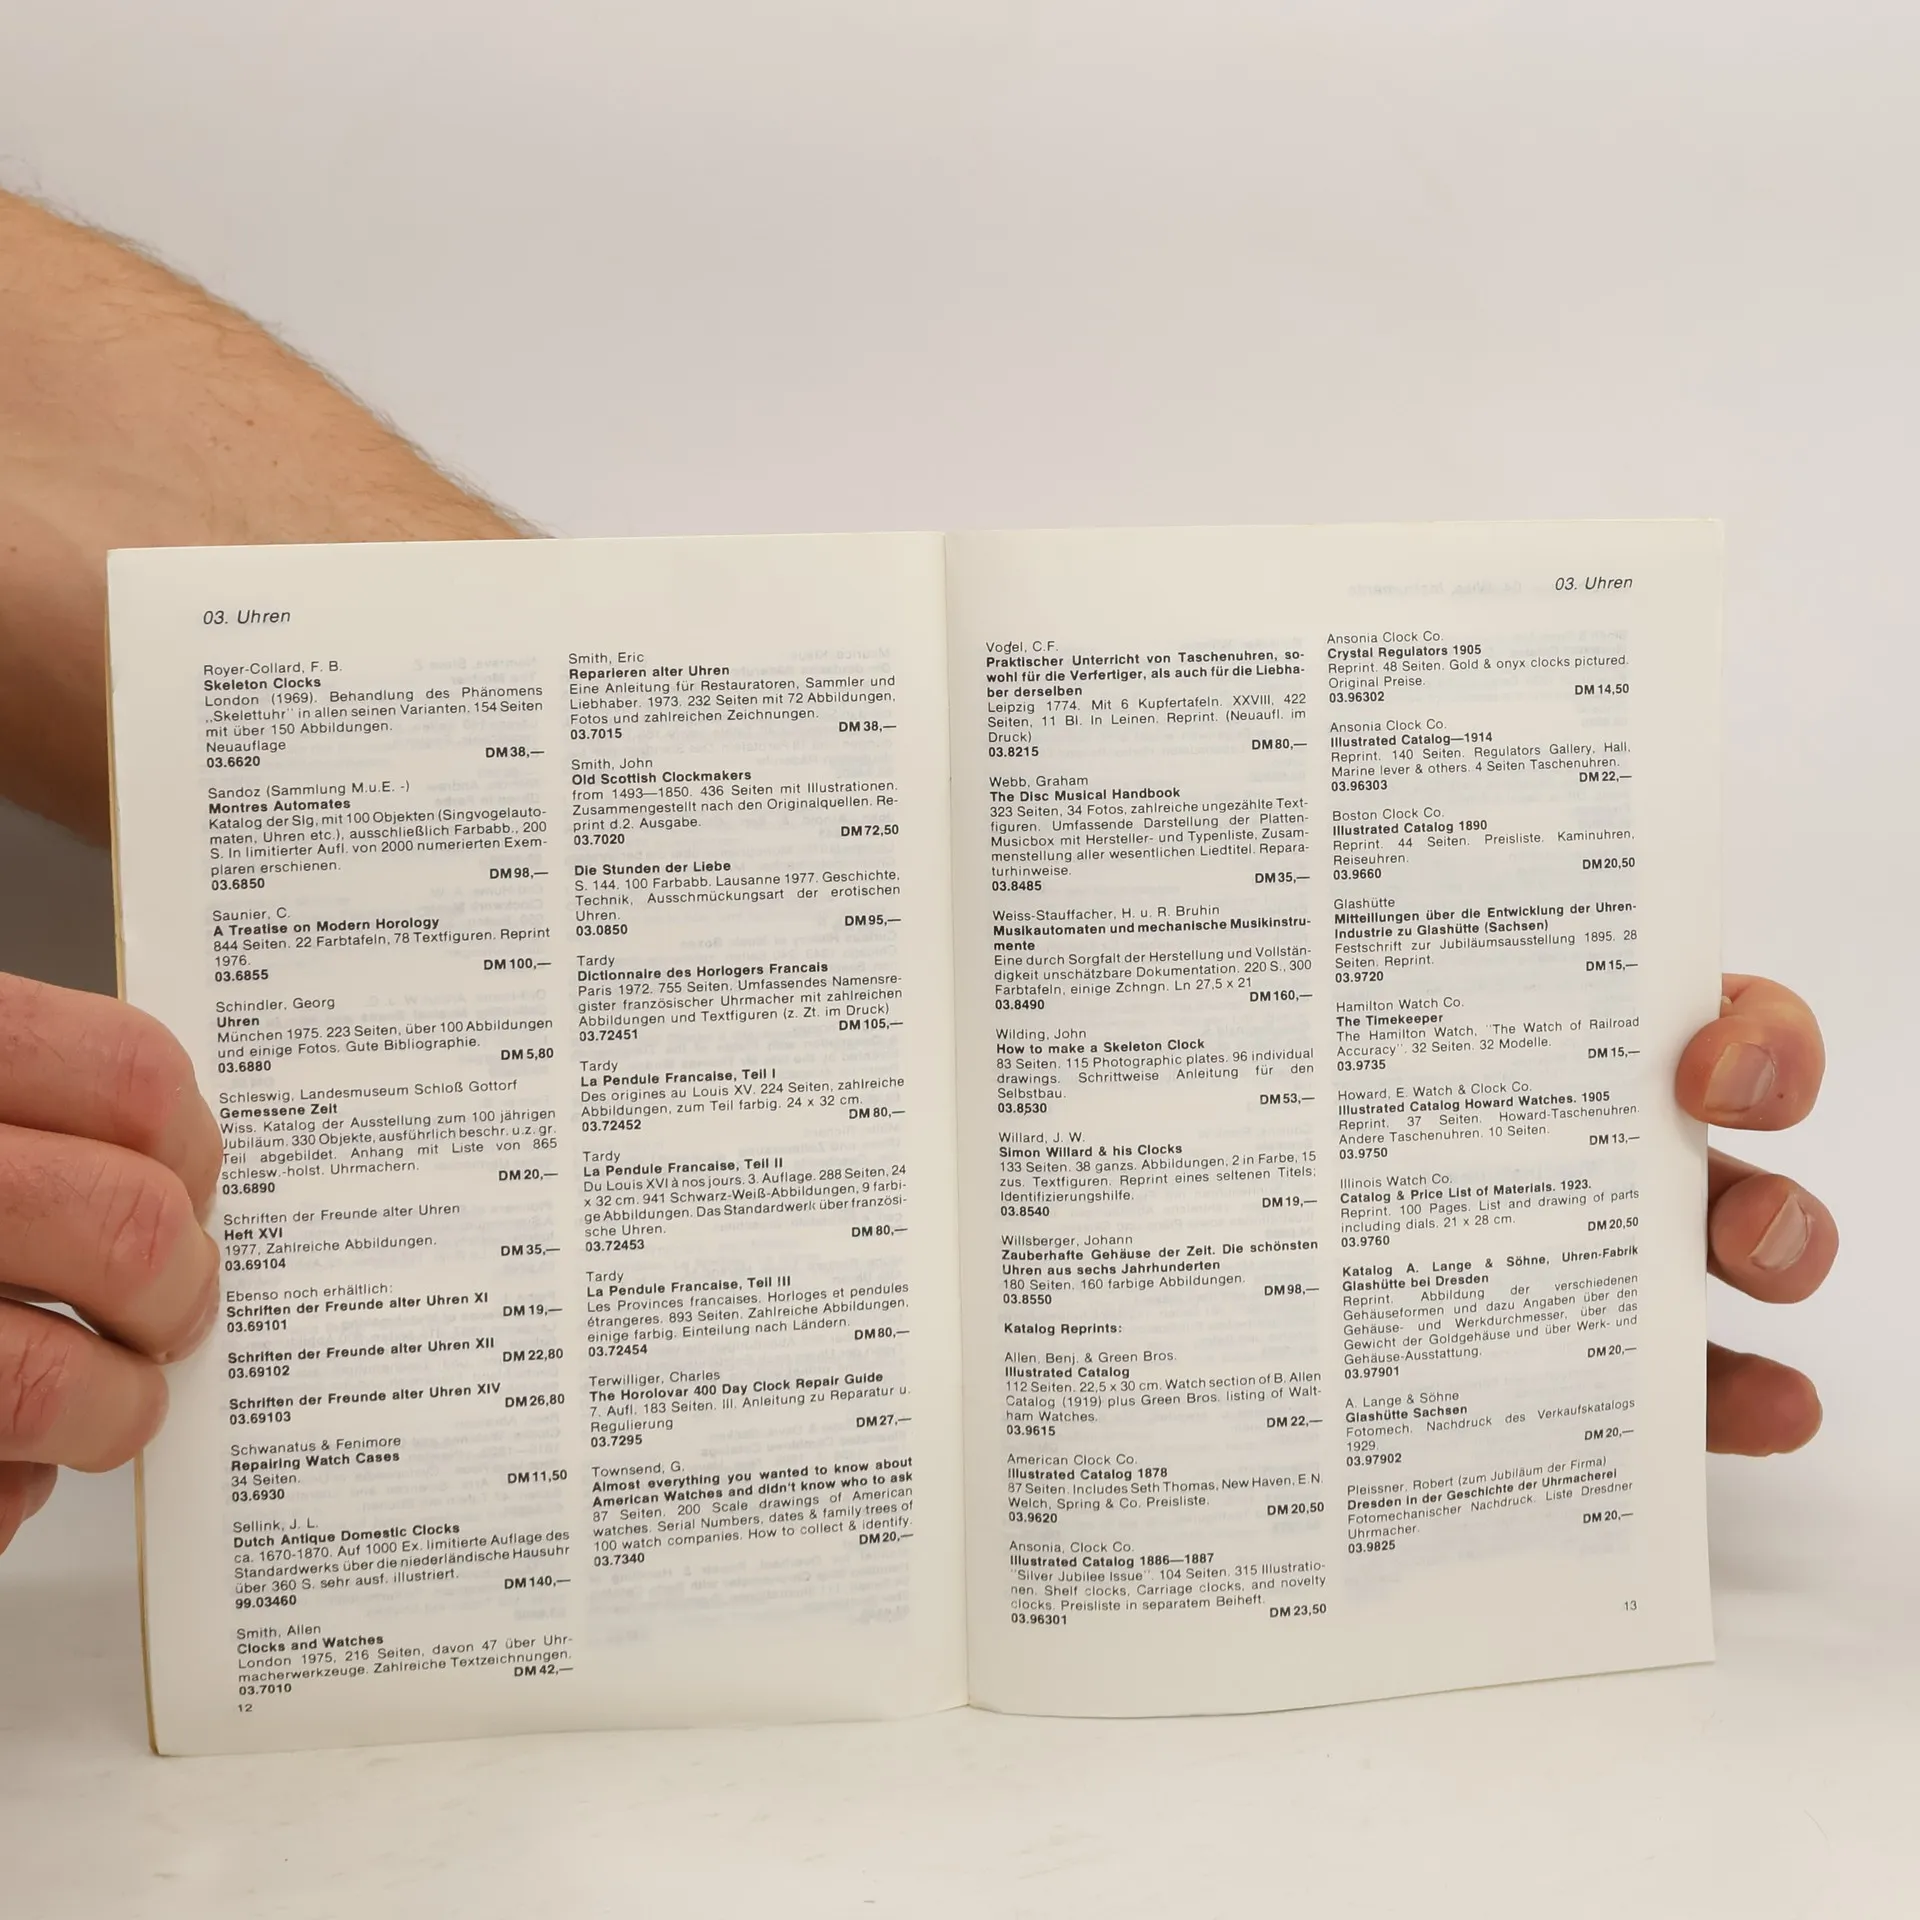 03. Uhren
Royer-Collard, F. B.
Skeleton Clocks
London (1969). Behandlung des Phänomens
„Skelettuhr" in allen seinen Varianten. 154 Seiten
mit über 150 Abbildungen.
Neuauflage
03.6620 DM 38,—
Sandoz (Sammlung M.u.E. -)
Montres Automates
Katalog der Slg. mit 100 Objekten (Singvogelauto-
maten, Uhren etc.), ausschließlich Farbabb., 200
S. In limitierter Aufl. von 2000 numerierten Exem-
plaren erschienen.
03.6850 DM 98,—
Saunier, C.
A Treatise on Modern Horology
844 Seiten. 22 Farbtafeln, 78 Textfiguren. Reprint
1976.
03.6855 DM 100,—
Schindler, Georg
Uhren
München 1975. 223 Seiten, über 100 Abbildungen
und einige Fotos. Gute Bibliographie.
03.6880 DM 5,80
Schleswig, Landesmuseum Schloß Gottorf
Gemessene Zeit
Wiss. Katalog der Ausstellung zum 100 jährigen
Jubiläum. 330 Objekte, ausführlich beschr. u.z. gr.
Teil abgebildet. Anhang mit Liste von 865
schlesw.-holst. Uhrmachern.
03.6890 DM 20,—
Schriften der Freunde alter Uhren
Heft XVI
1977, Zahlreiche Abbildungen.
03.69104 DM 35,—
Ebenso noch erhältlich:
Schriften der Freunde alter Uhren XI
03.69101 DM 19,—
Schriften der Freunde alter Uhren XII
03.69102 DM 22,80
Schriften der Freunde alter Uhren XIV
03.69103 DM 26,80
Schwanatus & Fenimore
Repairing Watch Cases
34 Seiten.
03.6930 DM 11,50
Sellink, J. L.
Dutch Antique Domestic Clocks
ca. 1670-1870. Auf 1000 Ex. limitierte Auflage des
Standardwerks über die niederländische Hausuhr
über 360 S. sehr ausf. illustriert.
99.03460 DM 140,—
Smith, Allen
Clocks and Watches
London 1975, 216 Seiten, davon 47 über Uhr-
macherwerkzeuge. Zahlreiche Textzeichnungen.
03.7010 DM 42,—
12
Smith, Eric
Reparieren alter Uhren
Eine Anleitung für Restauratoren, Sammler und
Liebhaber. 1973. 232 Seiten mit 72 Abbildungen,
Fotos und zahlreichen Zeichnungen.
03.7015 DM 38,—
Smith, John
Old Scottish Clockmakers
from 1493—1850. 436 Seiten mit Illustrationen.
Zusammengestellt nach den Originalquellen. Re-
print d.2. Ausgabe.
03.7020 DM 72,50
Die Stunden der Liebe
S. 144. 100 Farbabb. Lausanne 1977. Geschichte,
Technik, Ausschmückungsart der erotischen
Uhren.
03.0850 DM 95,—
Tardy
Dictionnaire des Horlogers Francais
Paris 1972. 755 Seiten. Umfassendes Namensre-
gister französischer Uhrmacher mit zahlreichen
Abbildungen und Textfiguren (z. Zt. im Druck)
03.72451 DM 105,—
Tardy
La Pendule Francaise, Teil I
Des origines au Louis XV. 224 Seiten, zahlreiche
Abbildungen, zum Teil farbig. 24 x 32 cm.
03.72452 DM 80,—
Tardy
La Pendule Francaise, Teil II
Du Louis XVI à nos jours. 3. Auflage. 288 Seiten, 24
x 32 cm. 941 Schwarz-Weiß-Abbildungen, 9 farbi-
ge Abbildungen. Das Standardwerk über französi-
sche Uhren.
03.72453 DM 80,—
Tardy
La Pendule Francaise, Teil III
Les Provinces francaises. Horloges et pendules
étrangeres. 893 Seiten. Zahlreiche Abbildungen,
einige farbig. Einteilung nach Ländern.
03.72454 DM 80,—
Terwilliger, Charles
The Horolovar 400 Day Clock Repair Guide
7. Aufl. 183 Seiten. Ill. Anleitung zu Reparatur u.
Regulierung
03.7295 DM 27,—
Townsend, G.
Almost everything you wanted to know about
American Watches and didn't know who to ask
87 Seiten. 200 Scale drawings of American
watches. Serial Numbers, dates & family trees of
100 watch companies. How to collect & identify.
03.7340 DM 20,—
03. Uhren
Vogel, C.F.
Praktischer Unterricht von Taschenuhren, so-
wohl für die Verfertiger, als auch für die Liebha-
ber derselben
Leipzig 1774. Mit 6 Kupfertafeln. XXVIII, 422
Seiten, 11 Bl. In Leinen. Reprint. (Neuaufl. im
Druck)
03.8215 DM 80,—
Webb, Graham
The Disc Musical Handbook
323 Seiten, 34 Fotos, zahlreiche ungezählte Text-
figuren. Umfassende Darstellung der Platten-
Musicbox mit Hersteller- und Typenliste, Zusam-
menstellung aller wesentlichen Liedtitel. Repara-
turhinweise.
03.8485 DM 35,—
Weiss-Stauffacher, H. u. R. Bruhin
Musikautomaten und mechanische Musikinstru-
mente
Eine durch Sorgfalt der Herstellung und Vollstän-
digkeit unschätzbare Dokumentation. 220 S., 300
Farbtafeln, einige Zchngn. Ln 27,5 x 21
03.8490 DM 160,—
Wilding, John
How to make a Skeleton Clock
83 Seiten. 115 Photographic plates. 96 individual
drawings. Schrittweise Anleitung für den
Selbstbau.
03.8530 DM 53,—
Willard, J. W.
Simon Willard & his Clocks
133 Seiten. 38 ganzs. Abbildungen, 2 in Farbe, 15
zus. Textfiguren. Reprint eines seltenen Titels;
Identifizierungshilfe.
03.8540 DM 19,—
Willsberger, Johann
Zauberhafte Gehäuse der Zeit. Die schönsten
Uhren aus sechs Jahrhunderten
180 Seiten. 160 farbige Abbildungen.
03.8550 DM 98,—
Katalog Reprints:
Allen, Benj. & Green Bros.
Illustrated Catalog
112 Seiten. 22,5 x 30 cm. Watch section of B. Allen
Catalog (1919) plus Green Bros. listing of Walt-
ham Watches.
03.9615 DM 22,—
American Clock Co.
Illustrated Catalog 1878
87 Seiten. Includes Seth Thomas, New Haven, E.N.
Welch, Spring & Co. Preisliste.
03.9620 DM 20,50
Ansonia, Clock Co.
Illustrated Catalog 1886—1887
"Silver Jubilee Issue". 104 Seiten. 315 Illustratio-
nen. Shelf clocks, Carriage clocks, and novelty
clocks. Preisliste in separatem Beiheft.
03.96301 DM 23,50
Ansonia Clock Co.
Crystal Regulators 1905
Reprint. 48 Seiten. Gold & onyx clocks pictured.
Original Preise.
03.96302 DM 14,50
Ansonia Clock Co.
Illustrated Catalog—1914
Reprint. 140 Seiten. Regulators Gallery, Hall,
Marine lever & others. 4 Seiten Taschenuhren.
03.96303 DM 22,—
Boston Clock Co.
Illustrated Catalog 1890
Reprint. 44 Seiten. Preisliste. Kaminuhren,
Reiseuhren.
03.9660 DM 20,50
Glashütte
Mitteilungen über die Entwicklung der Uhren-
Industrie zu Glashütte (Sachsen)
Festschrift zur Jubiläumsausstellung 1895. 28
Seiten. Reprint.
03.9720 DM 15,—
Hamilton Watch Co.
The Timekeeper
The Hamilton Watch, "The Watch of Railroad
Accuracy". 32 Seiten. 32 Modelle.
03.9735 DM 15,—
Howard, E. Watch & Clock Co.
Illustrated Catalog Howard Watches. 1905
Reprint. 37 Seiten. Howard-Taschenuhren.
Andere Taschenuhren. 10 Seiten.
03.9750 DM 13,—
Illinois Watch Co.
Catalog & Price List of Materials. 1923.
Reprint. 100 Pages. List and drawing of parts
including dials. 21 x 28 cm.
03.9760 DM 20,50
Katalog A. Lange & Söhne, Uhren-Fabrik
Glashütte bei Dresden
Reprint. Abbildung der verschiedenen
Gehäuseformen und dazu Angaben über den
Gehäuse- und Werkdurchmesser, über das
Gewicht der Goldgehäuse und über Werk- und
Gehäuse-Ausstattung.
03.97901 DM 20,—
A. Lange & Söhne
Glashütte Sachsen
Fotomech. Nachdruck des Verkaufskatalogs
1929.
03.97902 DM 20,—
Pleissner, Robert (zum Jubiläum der Firma)
Dresden in der Geschichte der Uhrmacherei
Fotomechanischer Nachdruck. Liste Dresdner
Uhrmacher.
03.9825 DM 20,—
13